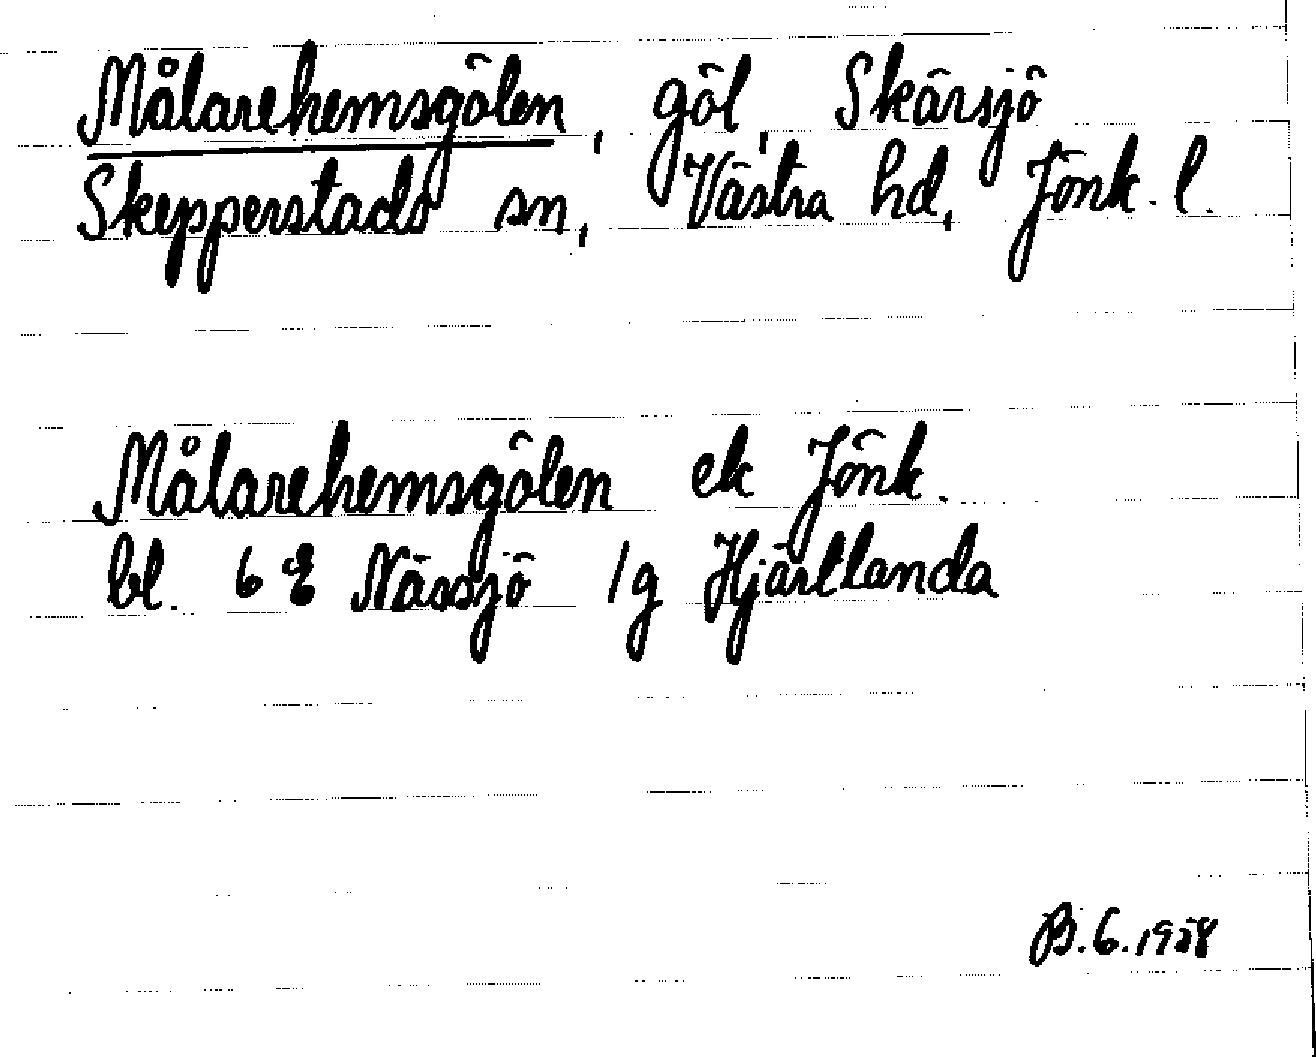 Målarehemsgölen, göl, Skärsjö
Skepperstads sn, Västra hd, Jönk. l.
Målarehemsgölen ek Jönk.
bl. 6 E Nässjö 1g Hjärtlanda
B.G. 1958